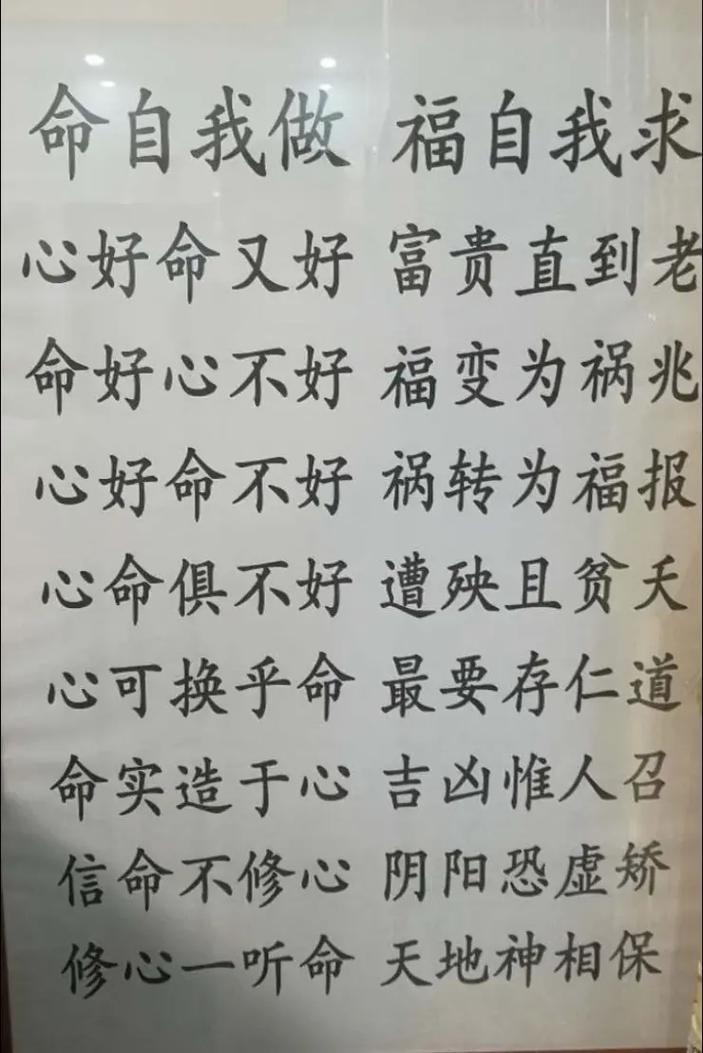 命自我做 福自我求
心好命又好 富贵直到老
命好心不好 福变为祸兆
心好命不好 祸转为福报
心命俱不好 遭殃且贫夭
心可换乎命 最要存仁道
命实造于心 吉凶惟人召
信命不修心 阴阳恐虚矫
修心一听命 天地神相保